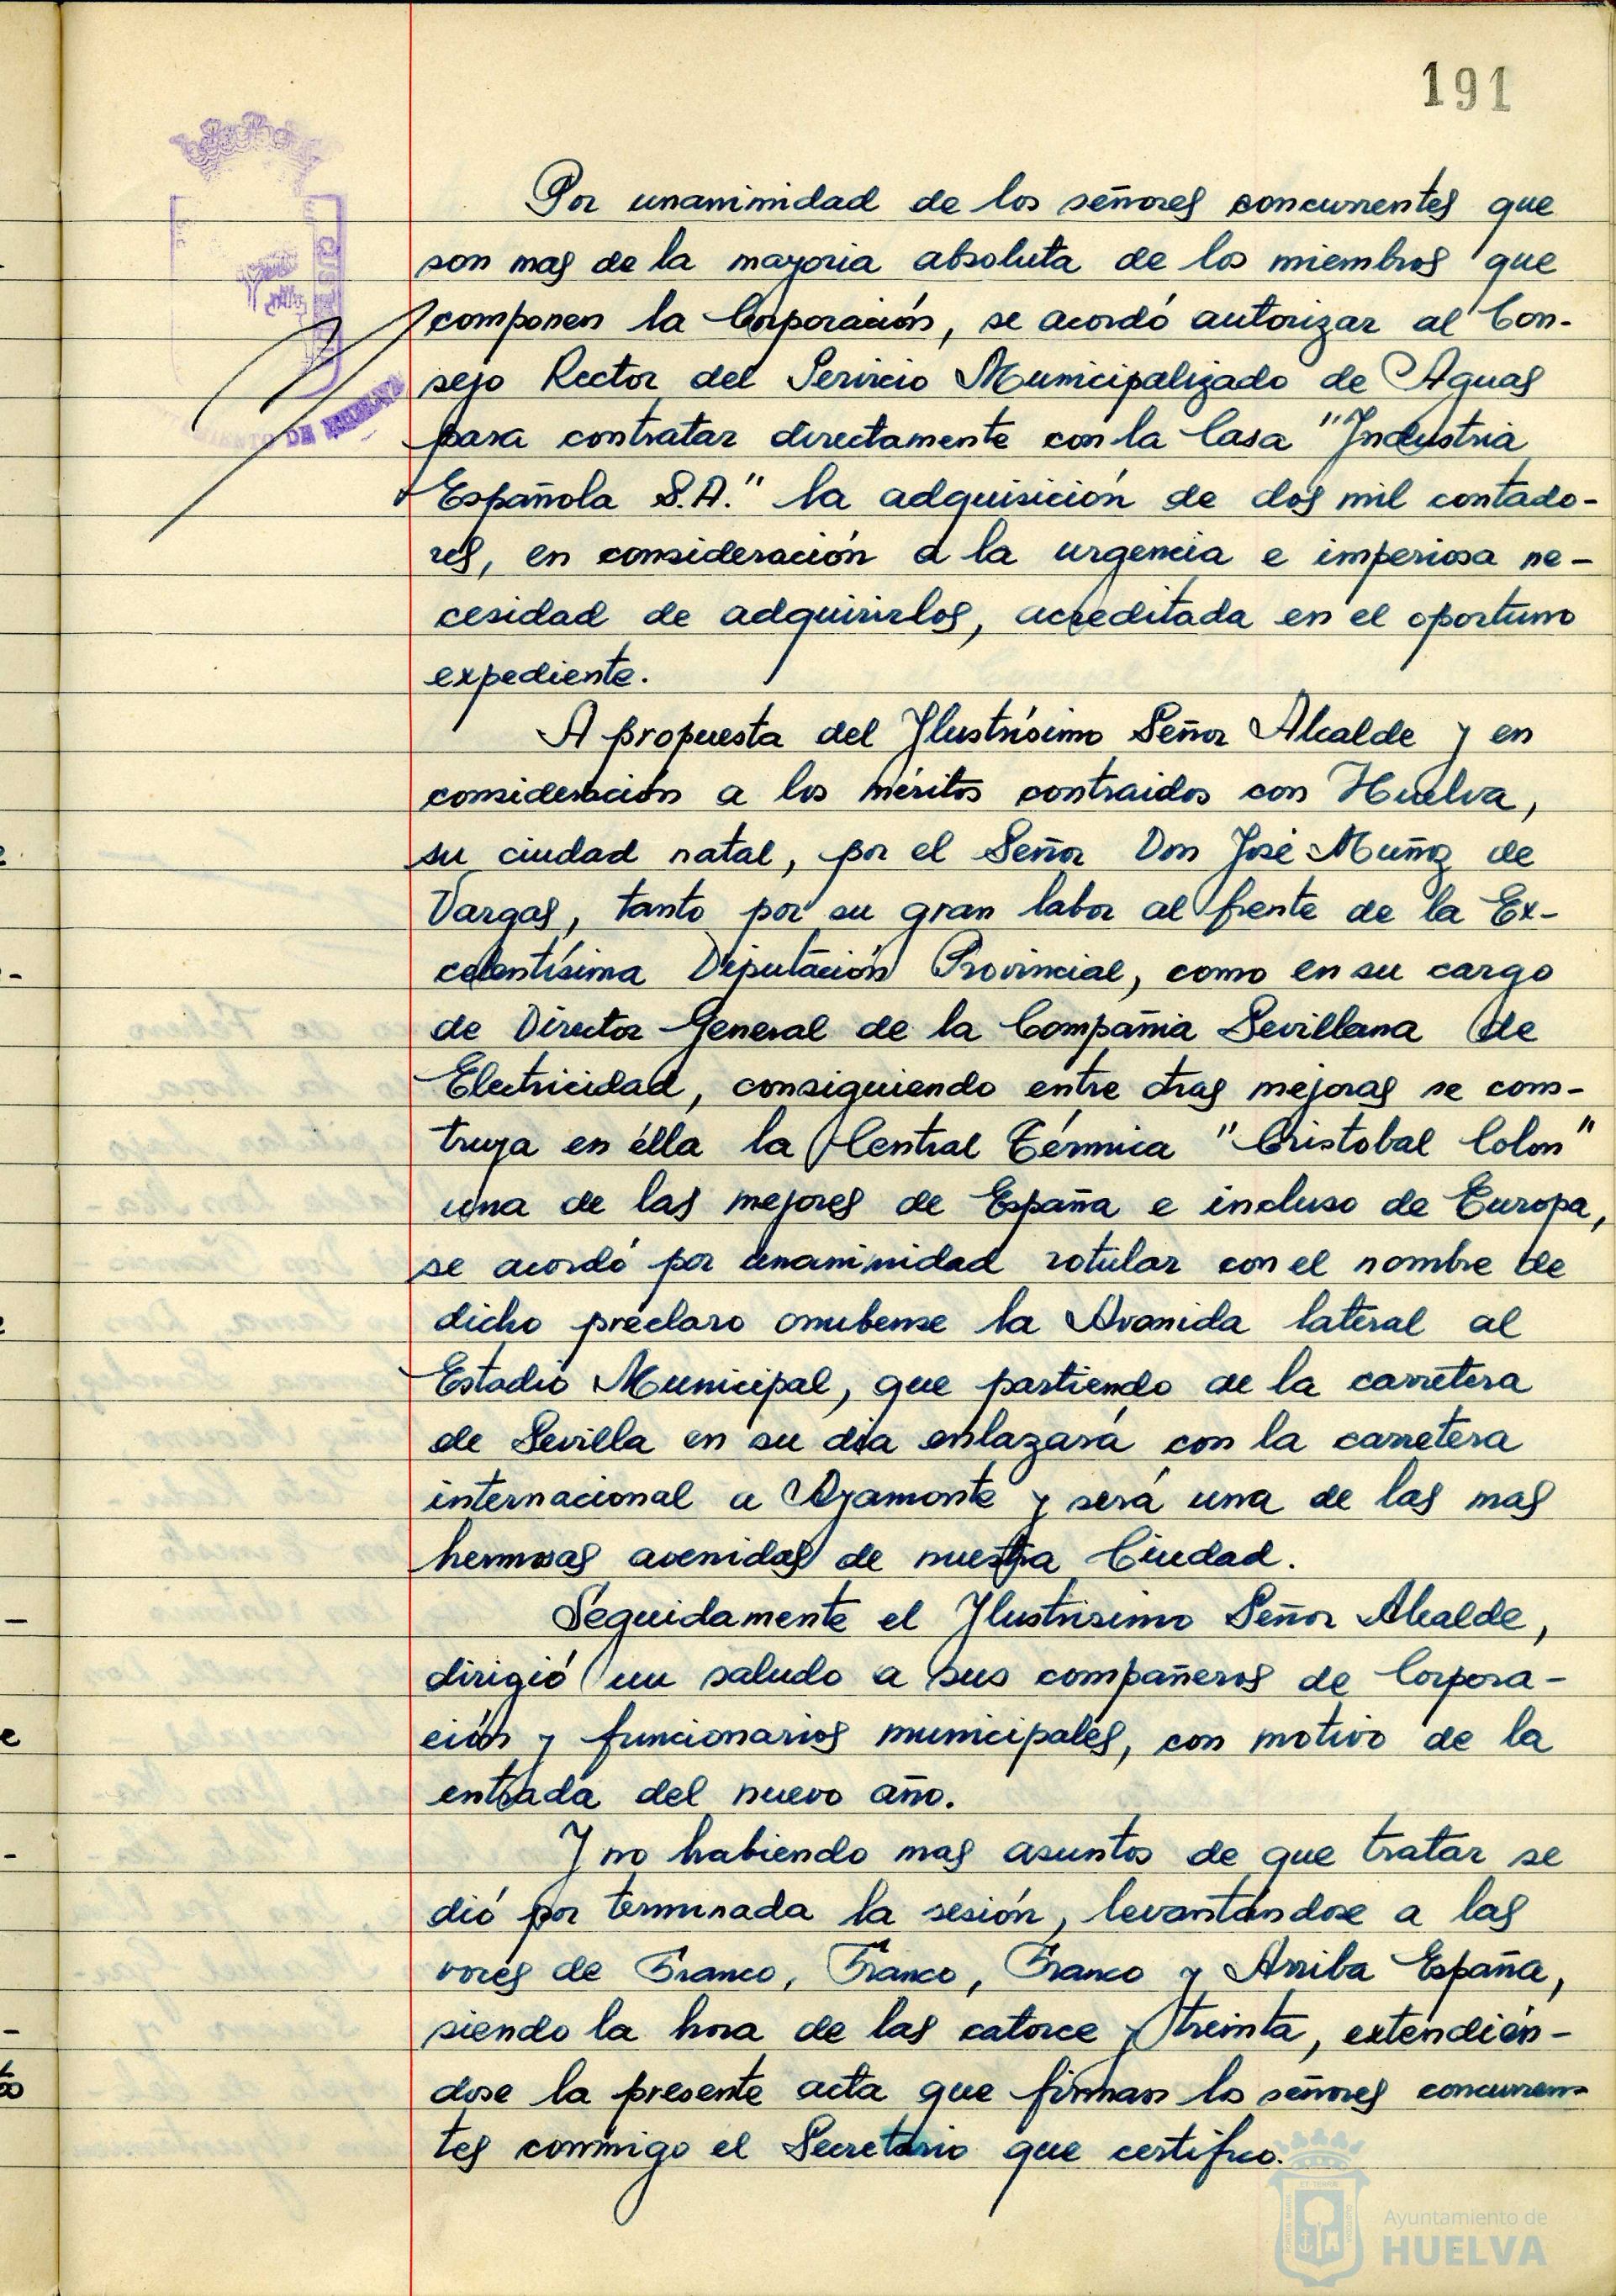 191
Por unanimidad de los señores concurrentes que
son mas de la mayoria absoluta de los miembros que
componen la Corporación, se acordó autorizar al Con-
sejo Rector del Servicio Municipalizado de Aguas
para contratar directamente con la Casa "Industria
Española S.A." la adquisición de dos mil contado-
res, en consideración a la urgencia e imperiosa ne-
cesidad de adquirirlos, acreditada en el oportuno
expediente.
A propuesta del Ilustrísimo Señor Alcalde y en
consideración a los méritos contraidos con Huelva,
su ciudad natal, por el Señor Don José Muñoz de
Vargas, tanto por su gran labor al frente de la Ex-
celentísima Diputación Provincial, como en su cargo
de Director General de la Compañia Sevillana de
Electricidad, consiguiendo entre otras mejoras se cons-
truya en élla la Central Térmica "Cristobal Colon"
una de las mejores de España e incluso de Europa,
se acordó por unanimidad rotular con el nombre de
dicho preclaro onubense la Avenida lateral al
Estadio Municipal, que partiendo de la carretera
de Sevilla en su dia enlazará con la carretera
internacional a Ayamonte y será una de las mas
hermosas avenidas de nuestra Ciudad.
Seguidamente el Ilustrisimo Señor Alcalde,
dirigió un saludo a sus compañeros de Corpora-
ción y funcionarios municipales, con motivo de la
entrada del nuevo año.
Y no habiendo mas asuntos de que tratar se
dió por terminada la sesión, levantándose a las
voces de Franco, Franco, Franco y Arriba España,
siendo la hora de las catorce y treinta, extendién-
dose la presente acta que firman los señores concurren-
tes conmigo el Secretario que certifico.
Ayuntamiento de
HUELVA